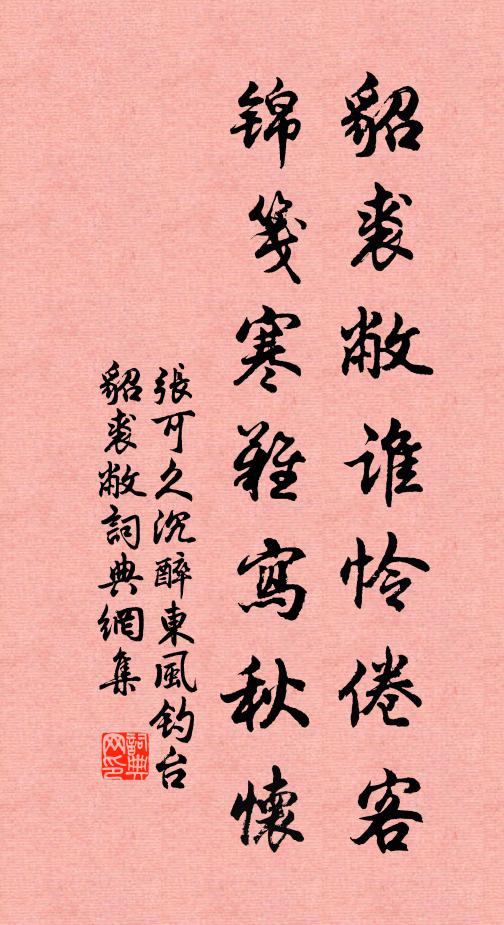 貂裘敝谁怜倦客
锦笺寒难寫秋懷
張可久沉醉東風钓台
貂裘敝詞典網集
詞典网印